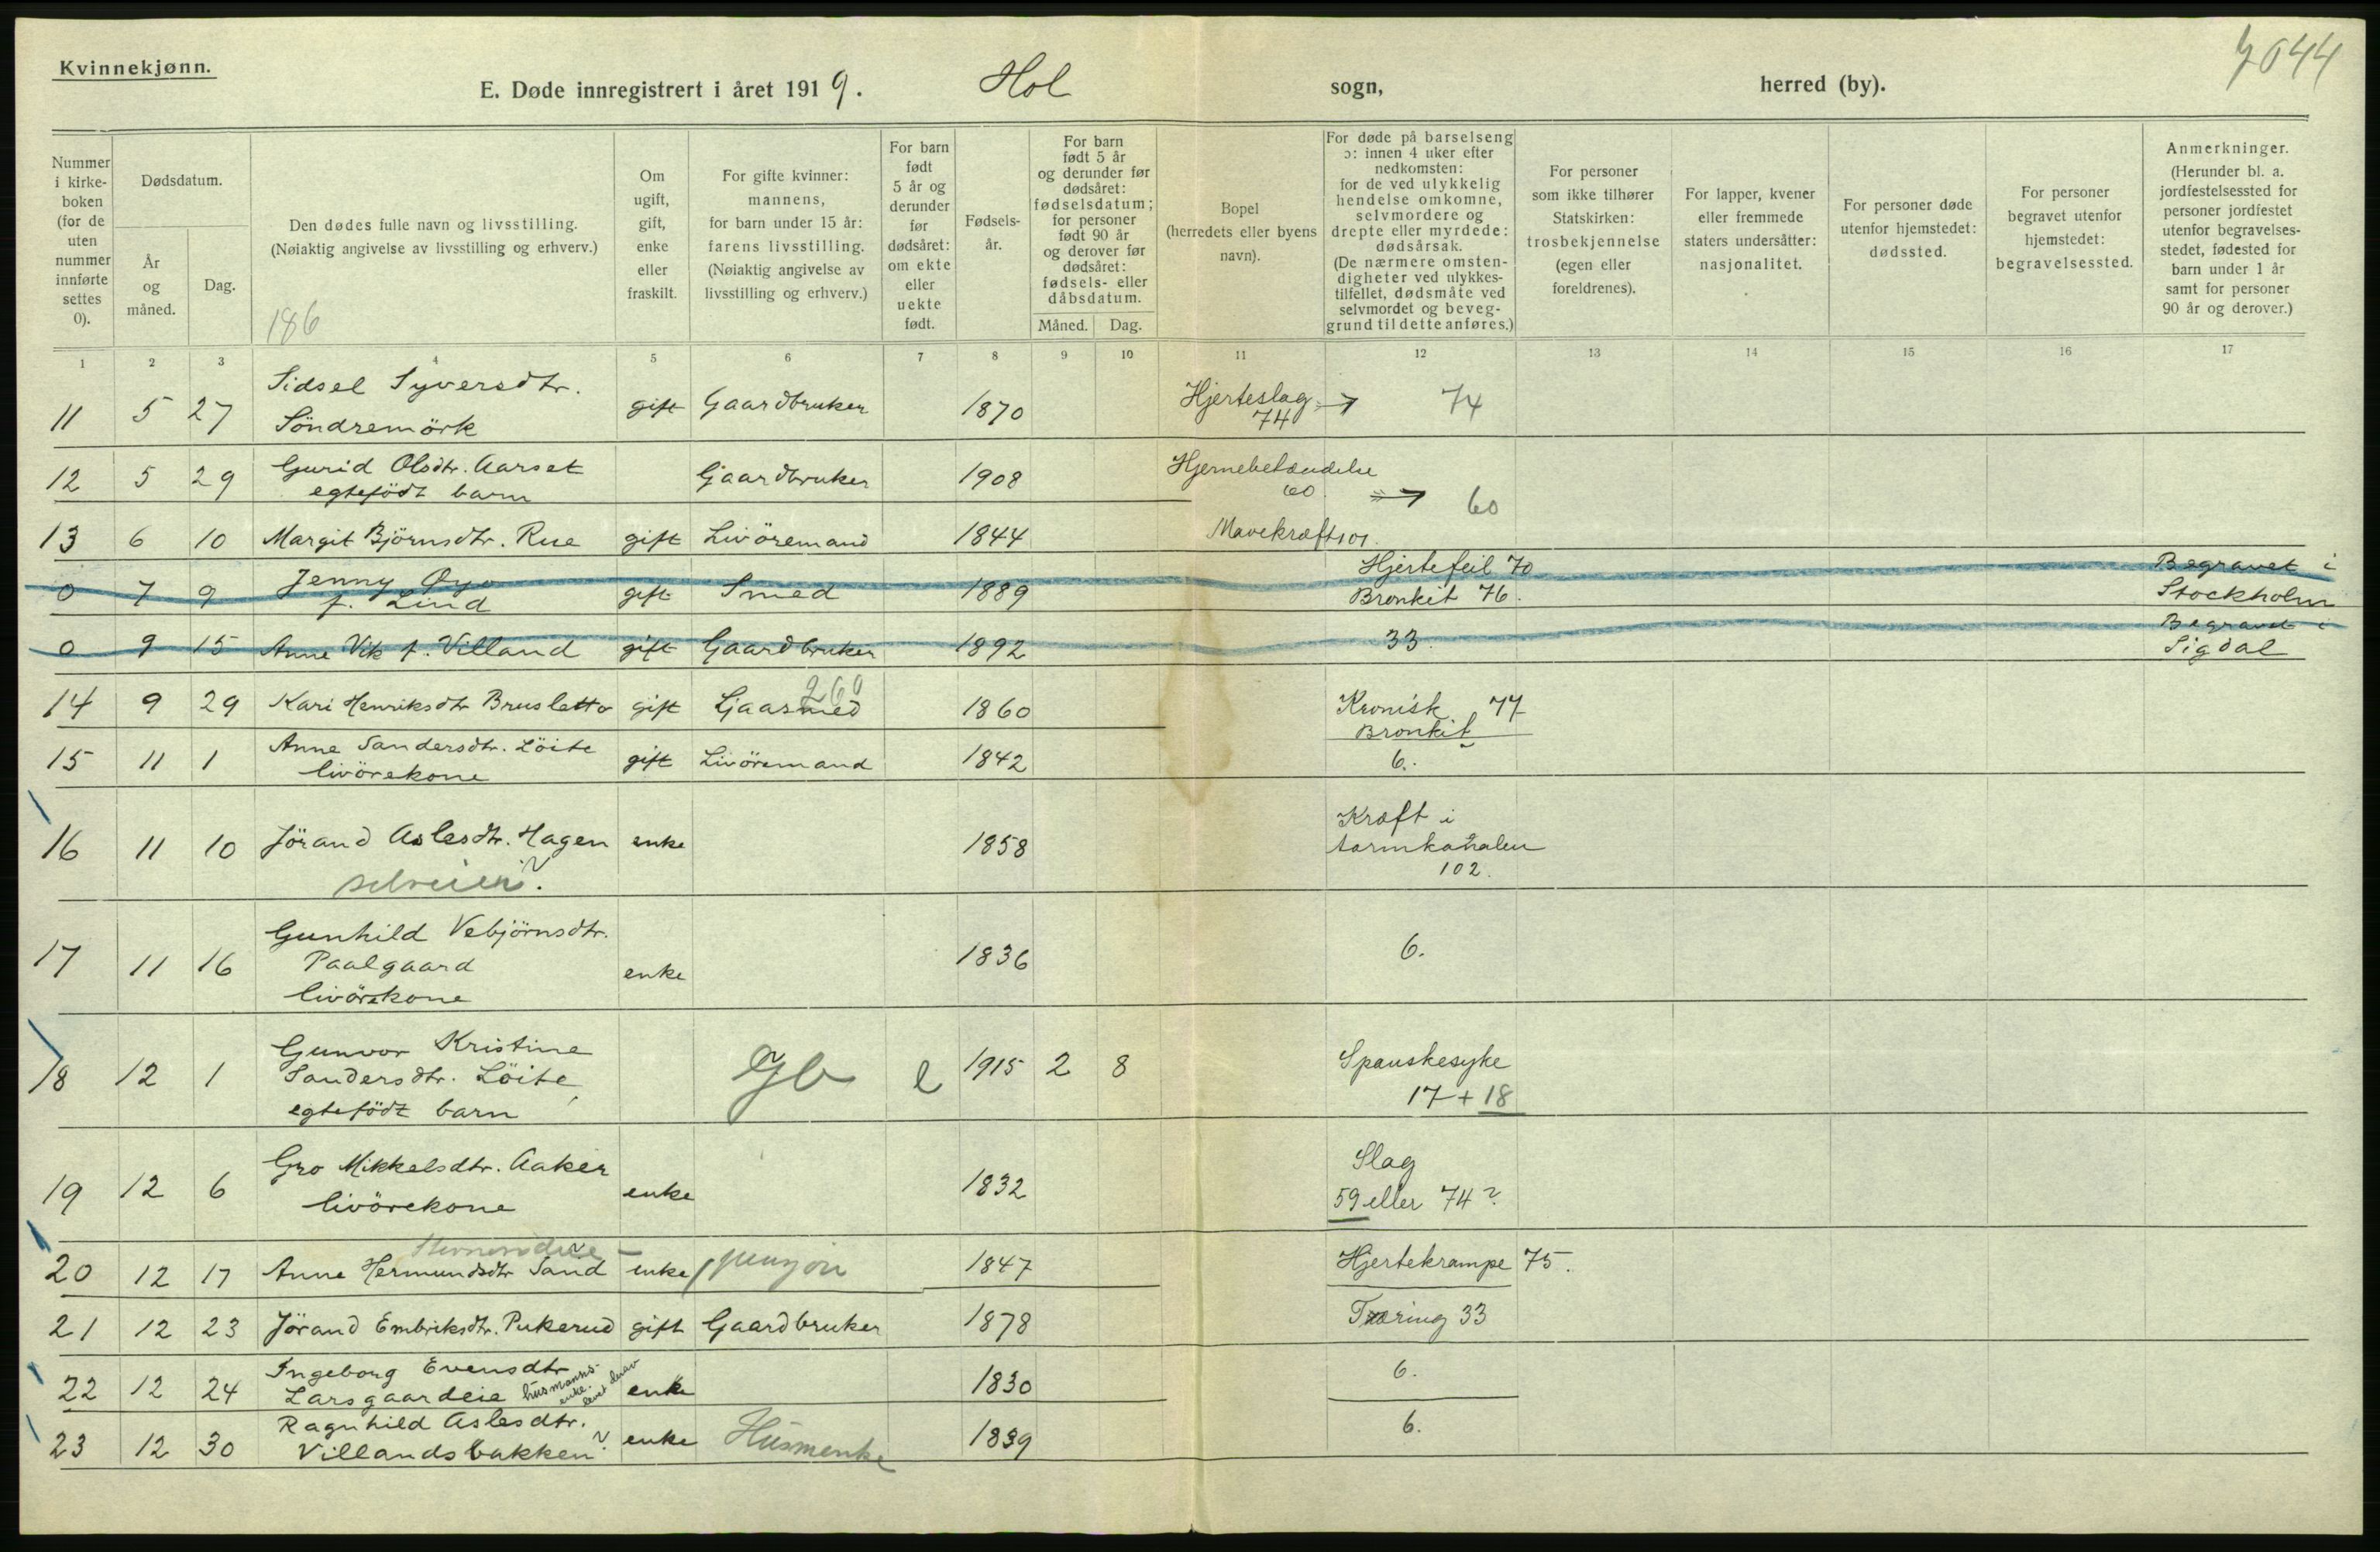 Kvinnekjønn.
E. Døde innregistrert i året 1919. Hol sogn, herred (by).
Nummer i kirke- boken (for de uten nummer innførte settes 0).
Dødsdatum.
År og måned.
Dag.
Den dødes fulle navn og livsstilling.
(Nøiaktig angivelse av livsstilling og erhverv.)
186
Om ugift, gift, enke eller fraskilt.
For gifte kvinner: mannens, for barn under 15 år: farens livsstilling. (Nøiaktig angivelse av livsstilling og erhverv.)
For barn født 5 år og derunder før dødsåret: om ekte eller uekte født.
Fødsels- år.
For barn født 5 år og derunder før dødsåret: fødselsdatum; for personer født 90 år og derover før dødsåret: fødsels- eller dåbsdatum.
Måned. Dag.
Bopel (herredets eller byens navn).
For døde på barselseng ɔ: innen 4 uker efter nedkomsten: for de ved ulykkelig hendelse omkomne, selvmordere og drepte eller myrdede: dødsårsak. (De nærmere omsten- digheter ved ulykkes- tilfellet, dødsmåte ved selvmordet og beveg- grund til dette anføres.)
For personer som ikke tilhører Statskirken: trosbekjennelse (egen eller foreldrenes).
For lapper, kvener eller fremmede staters undersåtter: nasjonalitet.
For personer døde utenfor hjemstedet: dødssted.
For personer begravet utenfor hjemstedet: begravelsessted.
Anmerkninger. (Herunder bl. a. jordfestelsessted for personer jordfestet utenfor begravelses- stedet, fødested for barn under 1 år samt for personer 90 år og derover.)
1 2 3 4 5 6 7 8 9 10 11 12 13 14 15 16 17
11 5 27 Sidsel Syversdtr. Söndremörk gift Gaardbruker 1870 Hjerteslag 74 → 74
12 5 29 Gurid Olsdtr. Aarset egtefödt barn Gaardbruker 1908 Hjernebetændelse 60 → 60
13 6 10 Margit Björnsdtr. Rue gift Livöremand 1844 Mavekræft 101.
0 7 9 Jenny Øyo f. Lind gift Smed 1889 Hjertefeil 70 Bronkit 76. Begravet i Stockholm
0 9 15 Anne Vik f. Villand gift Gaardbruker 1892 33. Begravet i Sigdal
14 9 29 Kari Henriksdtr Brusletto gift 1860 Kronisk 77 Bronkit
15 11 1 Anne Sandersdtr. Löite livörekone gift Livöremand 1842 6.
16 11 10 Jörand Aslesdtr. Hagen enke 1858 Kræft i tarmkanalen 102.
selveier?
17 11 16 Gunhild Vebjörnsdtr. Paalgaard livörekone enke 1836 6.
18 12 1 Gunvor Kristine Sandersdtr. Löite, egtefödt barn Gb e 1915 2 8 Spanskesyke 17 + 18
19 12 6 Gro Mikkelsdtr. Aaker livörekone enke 1832 Slag 59 eller 74?
20 12 17 Anne Hermundsdtr Sand enke 1847 Hjertekrampe 75.
21 12 23 Jörand Embriksdtr. Pukerud gift Gaardbruker 1878 Tæring 33
22 12 24 Ingeborg Evensdtr Larsgaardeie husmanns- enke. levet derav enke 1830 6.
23 12 30 Ragnhild Aslesdtr. Villandsbakken? enke Husmenke 1839 6.